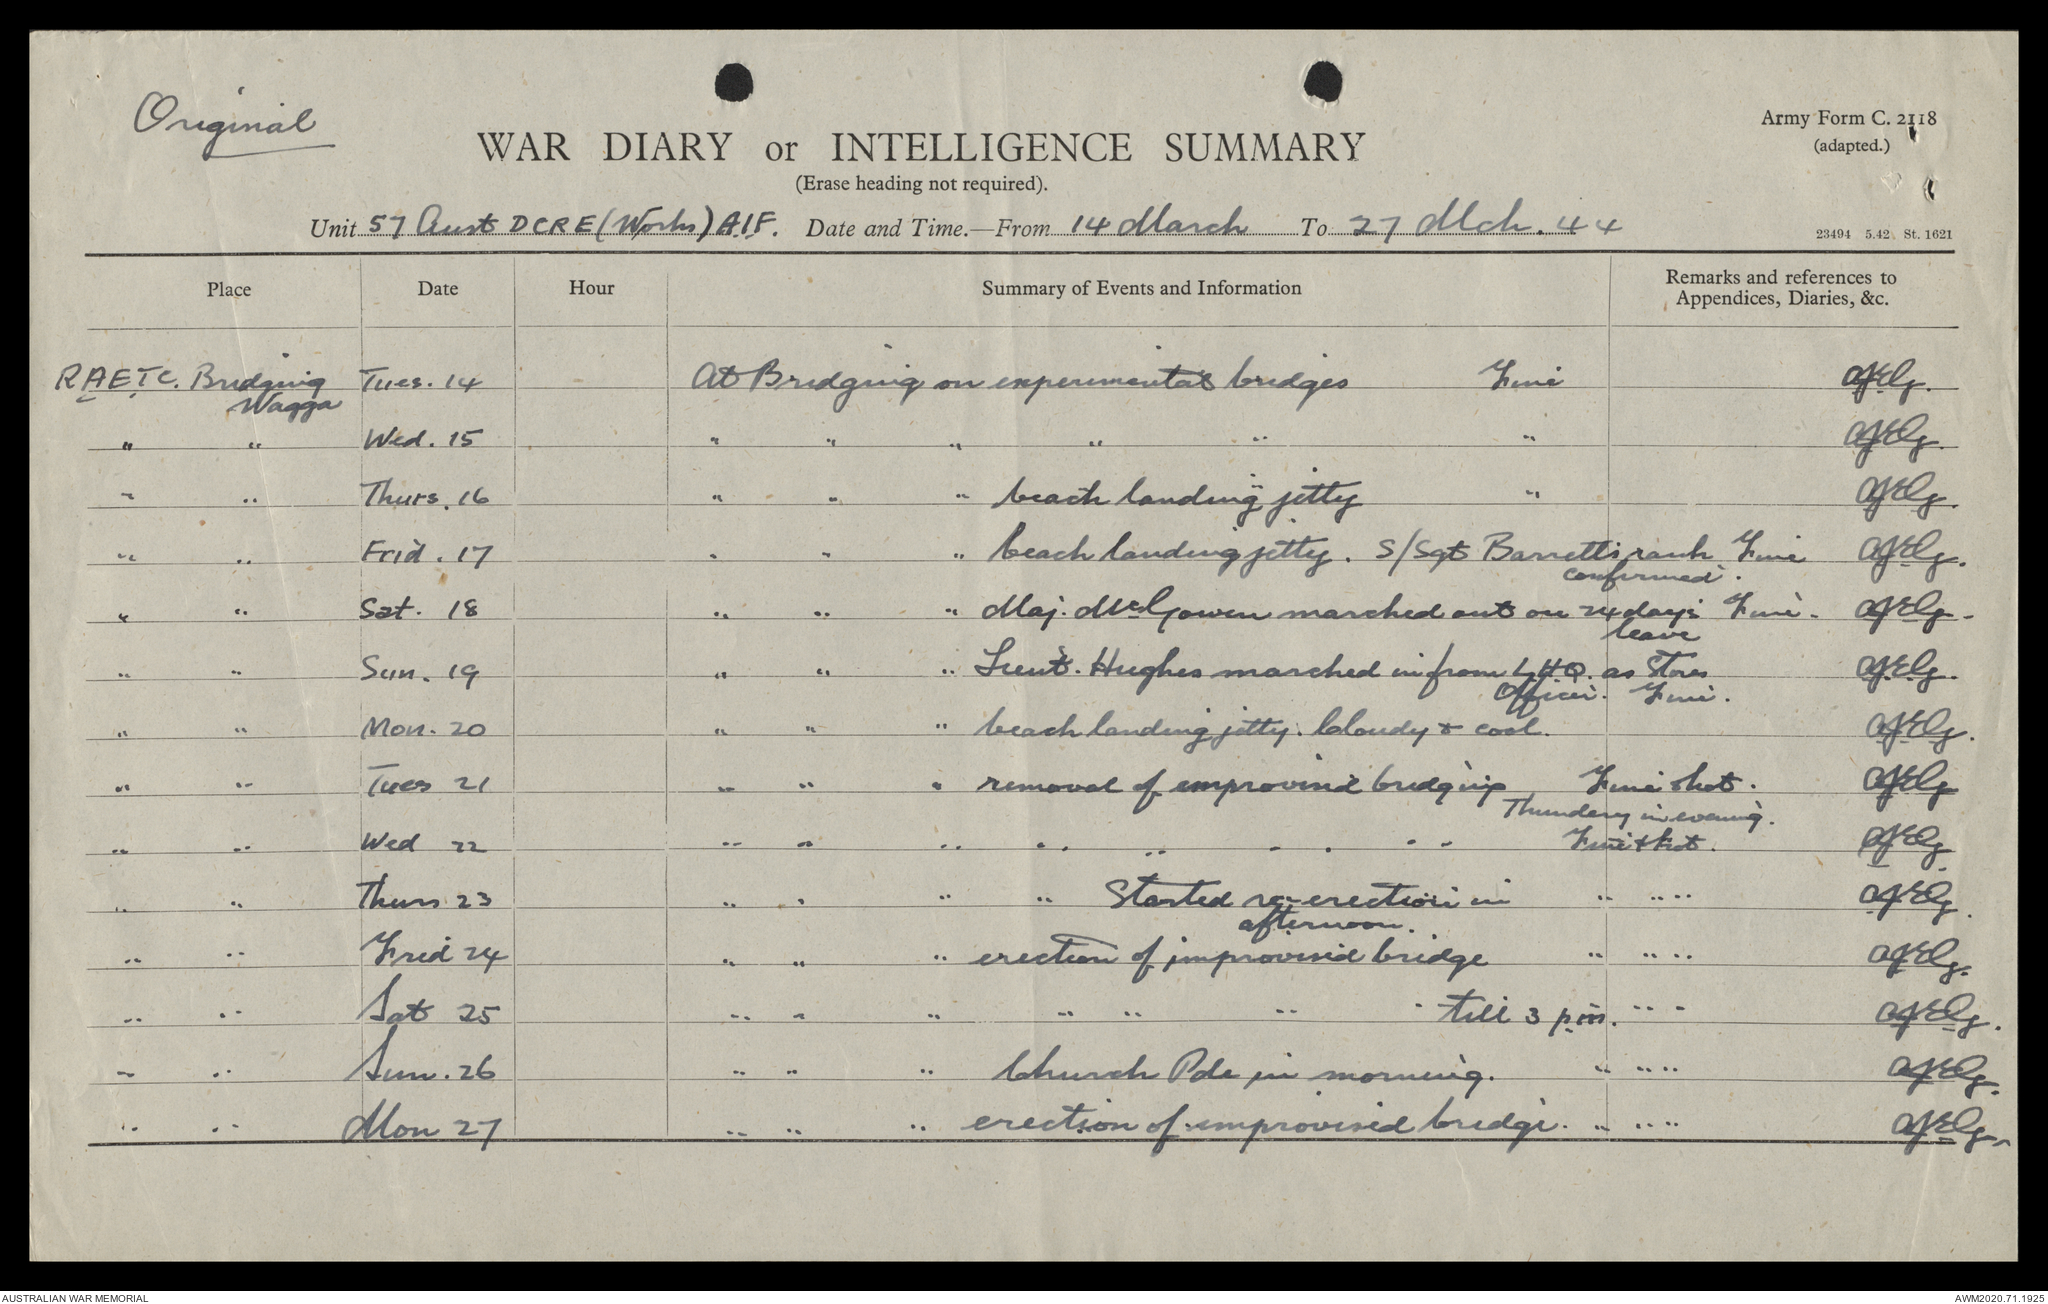 Original
Army Form C. 2118
(adapted.)
WAR DIARY or INTELLIGENCE SUMMARY
(Erase heading not required).
Unit 57 Aust DCRE (Works) A.I.F. Date and Time.—From 14 March To 27 Mch. 44
23494 5.42 St. 1621
Place Date Hour Summary of Events and Information Remarks and references to
Appendices, Diaries, &c.
RAETC. Bridging Tues. 14 At Bridging on experimental bridges Fine
Wagga
" " Wed. 15 " " " " " "
" " Thurs. 16 " " " beach landing jetty "
" " Frid. 17 " " " beach landing jetty. S/Sgt Barrett's rank Fine
confirmed.
" " Sat. 18 " " " Maj. McGowen marched out on 24 days Fine.
leave
" " Sun. 19 " " " Lieut. Hughes marched in from LHQ. as Stores
Officer. Fine.
" " Mon. 20 " " " beach landing jetty. Cloudy & cool.
" " Tues 21 " " " removal of improvised bridging Fine & hot.
Thundery in evening.
" " Wed 22 " " " " " " " " Fine & hot.
" " Thurs 23 " " " " Started re-erection in " " "
afternoon.
" " Frid 24 " " " erection of improvised bridge " " "
" " Sat 25 " " " " " " " till 3 p.m. " "
" " Sun. 26 " " " Church Pde in morning. " " "
" " Mon 27 " " " erection of improvised bridge. " " "
AUSTRALIAN WAR MEMORIAL
AWM2020.71.1925